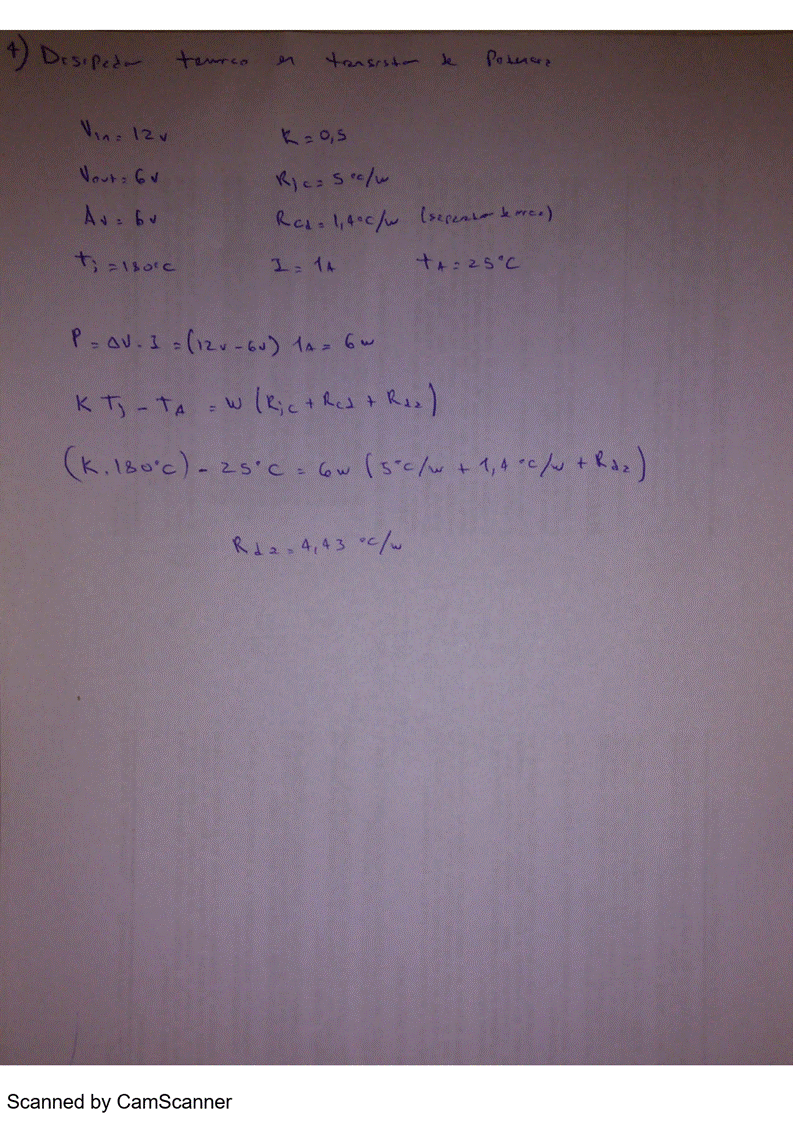 4) Disipador termico en transistor de Potencia
Vin = 12v K = 0,5
Vout = 6v Rjc = 5 °c/w
Δv = 6v Rcd = 1,4 °c/w (separador de mica)
tj = 180°C I = 1A tA = 25°C
P = ΔV . I = (12v - 6v) 1A = 6w
K Tj - TA = W (Rjc + Rcd + Rdz)
(K . 180°C) - 25°C = 6w (5°c/w + 1,4 °c/w + Rdz)
Rdz = 4,43 °c/w
Scanned by CamScanner